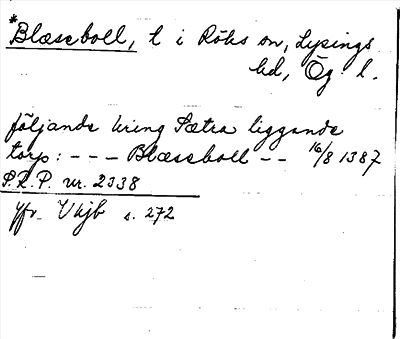 *Blæseboll, t i Röks sn, Lysings
hd, Ög. l.
följande kring Sætra liggande
torp: - - - Blæseboll - - 16/8 1387
S.R.P. nr. 2338
Jfr. Vkjb s. 272